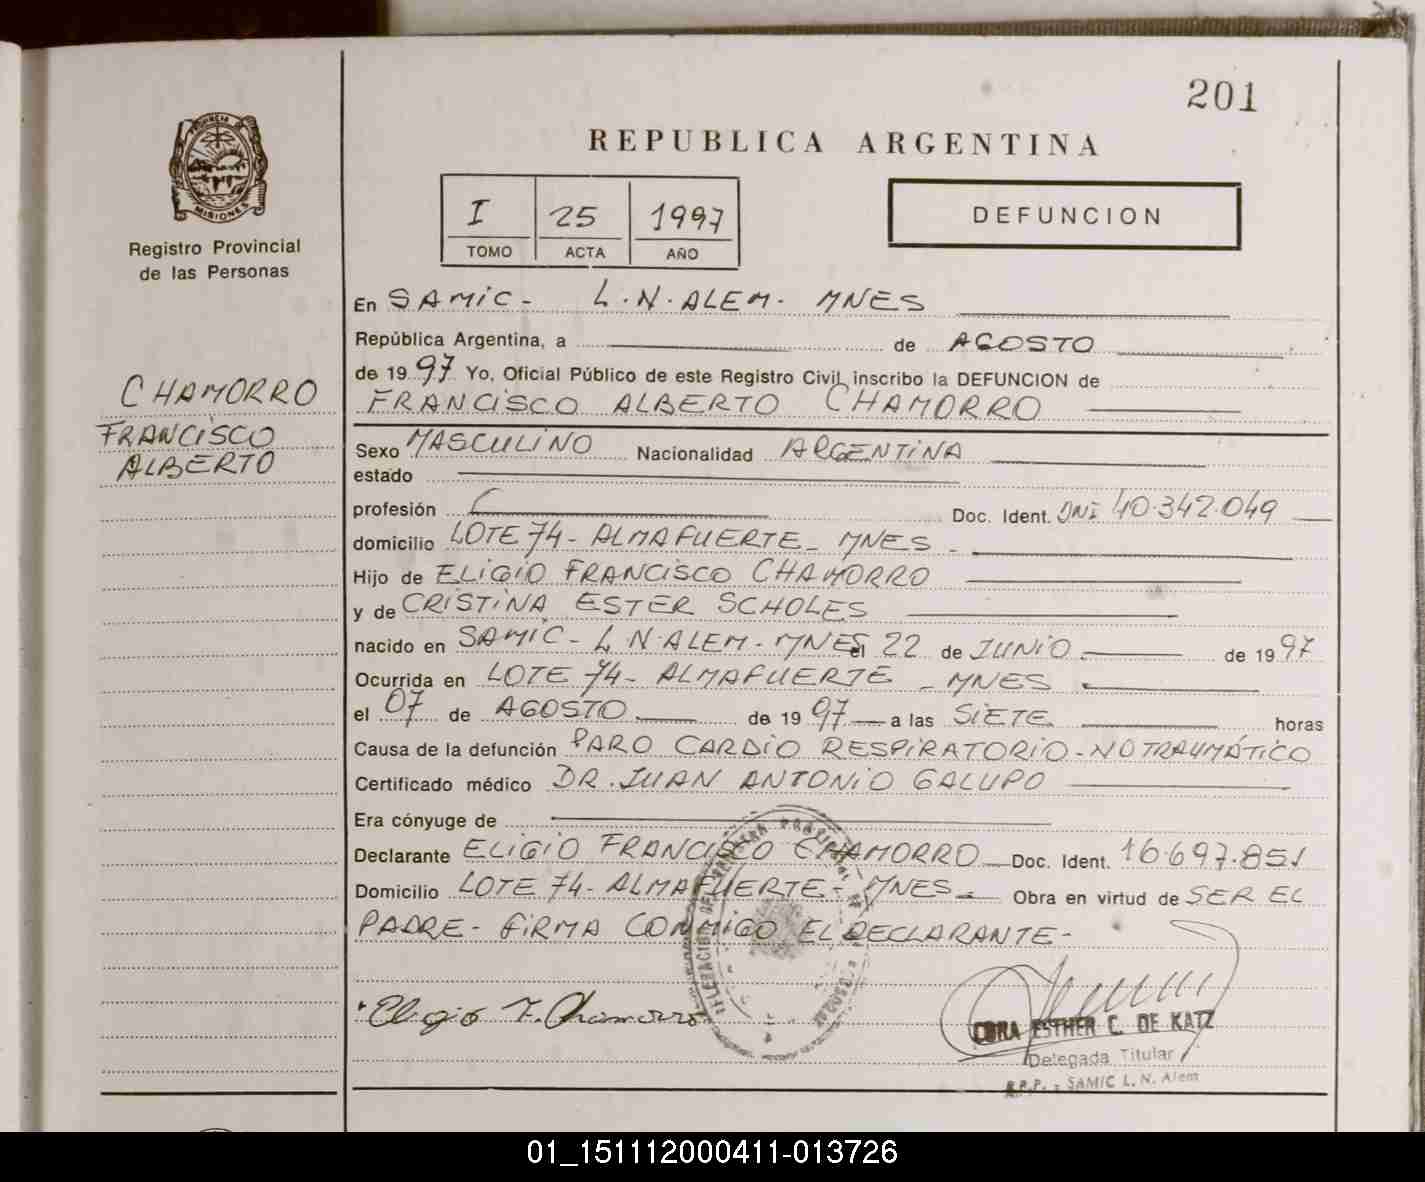 201
REPUBLICA ARGENTINA
PROVINCIA DE
MISIONES
Registro Provincial
de las Personas
I 25 1997
TOMO ACTA AÑO
DEFUNCION
En SAMIC - L.N.ALEM - MNES
República Argentina, a de AGOSTO
de 1997 Yo, Oficial Público de este Registro Civil, inscribo la DEFUNCION de
FRANCISCO ALBERTO CHAMORRO
CHAMORRO
FRANCISCO
ALBERTO
Sexo MASCULINO Nacionalidad ARGENTINA
estado
profesión Doc. Ident. DNI 40.342.049
domicilio LOTE 74 - ALMAFUERTE - MNES -
Hijo de ELIGIO FRANCISCO CHAMORRO
y de CRISTINA ESTER SCHOLES
nacido en SAMIC - L.N.ALEM - MNES el 22 de JUNIO de 1997
Ocurrida en LOTE 74 - ALMAFUERTE - MNES
el 07 de AGOSTO de 1997 a las SIETE horas
Causa de la defunción PARO CARDIO RESPIRATORIO - NO TRAUMÁTICO
Certificado médico DR. JUAN ANTONIO GALUPO
Era cónyuge de
Declarante ELIGIO FRANCISCO CHAMORRO Doc. Ident. 16.697.851
Domicilio LOTE 74 - ALMAFUERTE - MNES - Obra en virtud de SER EL
PADRE - FIRMA CONMIGO EL DECLARANTE -
Eligio F. Chamorro
ESTHER C. DE KATZ
Delegada Titular
R.P.P. - SAMIC L. N. Alem
01_151112000411-013726